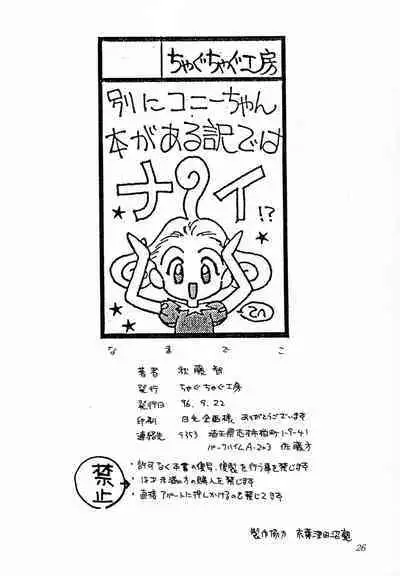 ちゃぐちゃぐ工房
別にコニーちゃん
本がある訳では
ナイ!?
てへ
なまでこ
著者
発行 ちゃぐちゃぐ工房
発行日 '96.9.22
印刷 日光企画様、ありがとうございます
連絡先 〒353 埼玉県志木市柏町1-9-41
パークハイムA-203 佐藤方
禁止
・許可なく本書の複写、複製を行う事を禁じます
の購入を禁じます
・直接アパートに押しかけるのも禁じてます
製作協力 津田沼
26